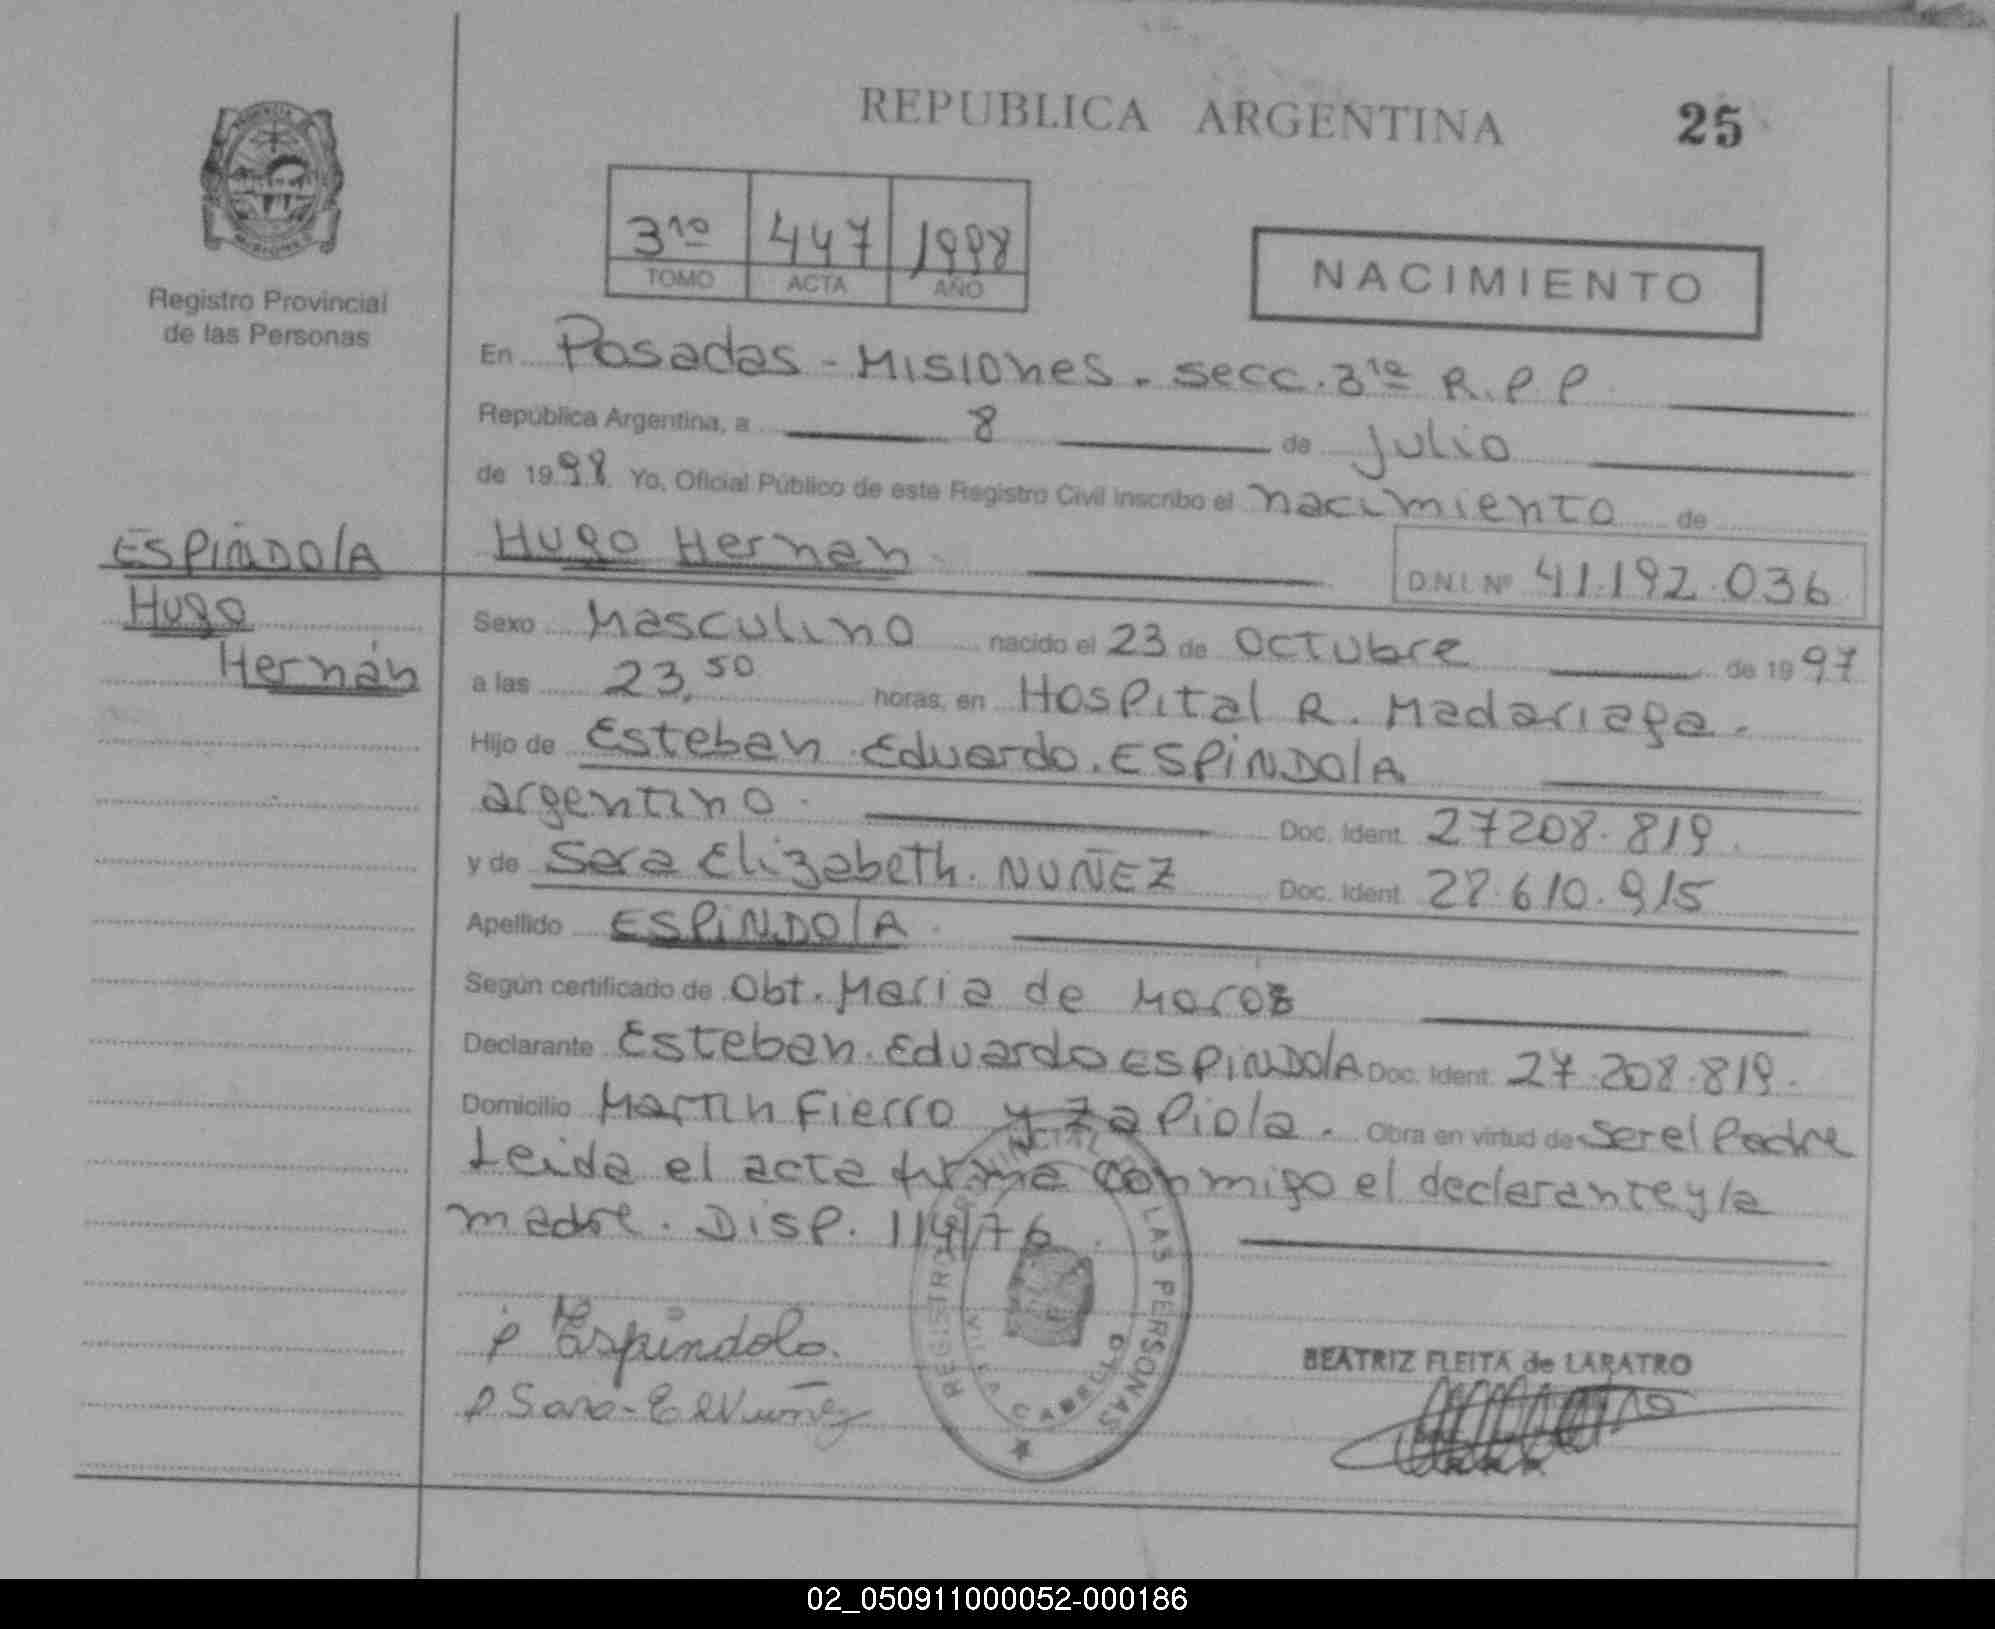 REPUBLICA ARGENTINA 25
3ro 447 1998
TOMO ACTA AÑO
NACIMIENTO
Registro Provincial
de las Personas
En Posadas - Misiones. secc. 3ra R.P.P.
República Argentina, a 8 de julio
de 1998 Yo, Oficial Público de este Registro Civil inscribo el nacimiento de
Hugo Hernan. D.N.I. Nº 41.192.036
ESPINDOLA
Hugo
Hernán
Sexo Masculino nacido el 23 de octubre de 1997
a las 23,50 horas, en Hospital R. Madariaga.
Hijo de Esteban Eduardo. ESPINDOLA
argentino. Doc. Ident. 27208.819.
y de Sara Elizabeth. NUÑEZ Doc. Ident. 28.610.915
Apellido ESPINDOLA.
Según certificado de Obt. Maria de Moroz
Declarante Esteban. Eduardo ESPINDOLA Doc. Ident. 27.208.819.
Domicilio Martin Fierro y Zapiola. Obra en virtud de Ser el Padre
Leida el acta firma conmigo el declarante y la
madre. Disp. 114/76.
REGISTRO PROVINCIAL DE LAS PERSONAS
VILLA CABELLO
P Espindola.
P Sara-E Nuñez
BEATRIZ FLEITA de LARATRO
02_050911000052-000186